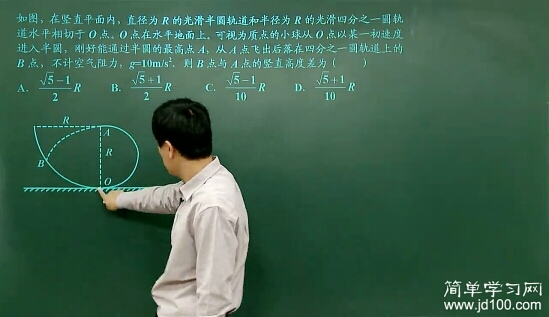 如图，在竖直平面内，直径为R的光滑半圆轨道和半径为R的光滑四分之一圆轨
道水平相切于O点，O点在水平地面上。可视为质点的小球从O点以某一初速度
进入半圆，刚好能通过半圆的最高点A，从A点飞出后落在四分之一圆轨道上的
B点，不计空气阻力，g=10m/s². 则B点与A点的竖直高度差为（ ）
A. (√5-1)/2 R B. (√5+1)/2 R C. (√5-1)/10 R D. (√5+1)/10 R
R
A
R
B
O
简单学习网
www.jd100.com